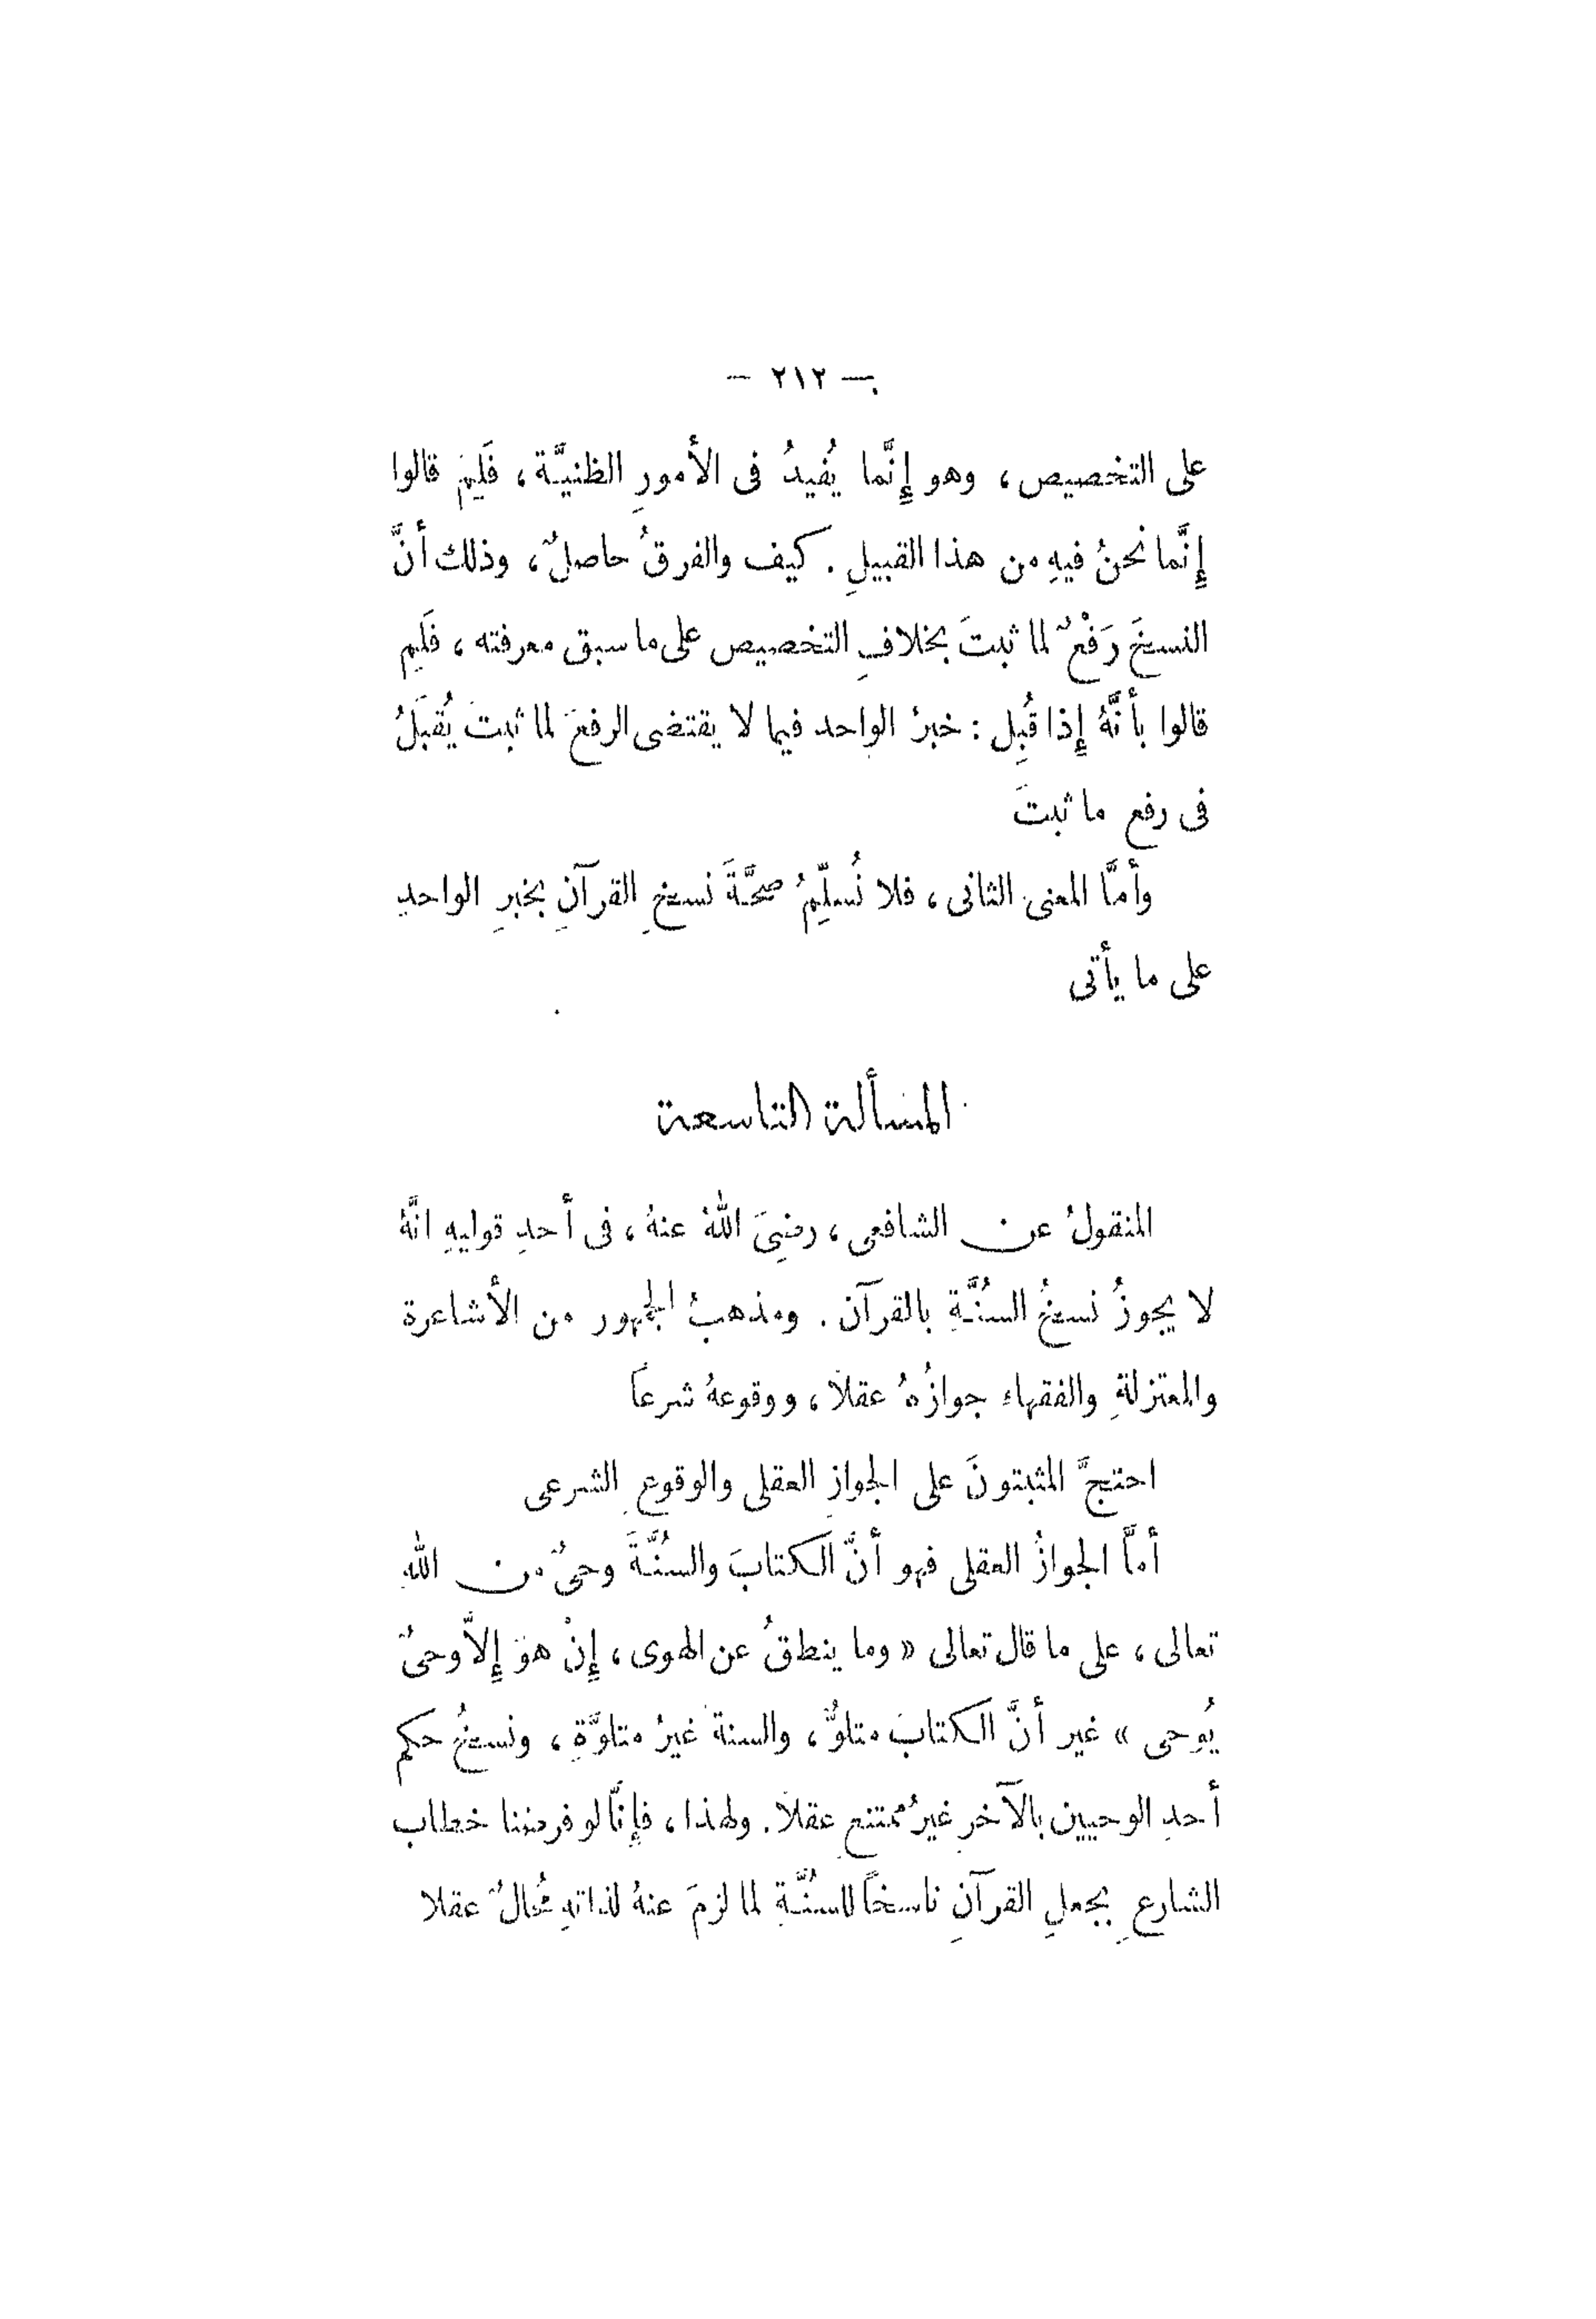 — ٢١٢ —
على التخصيص ، وهو إِنَّما يُفيدُ فى الأمورِ الظنيَّة ، فَلِمَ قالوا
إِنَّما نحنُ فيهِ من هذا القبيلِ . كيف والفرقُ حاصلٌ ، وذلك أنَّ
النسخَ رَفْعٌ لما ثبتَ بخلافِ التخصيص على ما سبق معرفته ، فَلِم
قالوا بأنَّهُ إِذا قُبِل : خبرُ الواحد فيما لا يقتضى الرفعَ لما ثبتَ يُقبَلُ
فى رفع ما ثبتَ
وأمَّا المعنى الثانى ، فلا نُسلِّمُ صحَّةَ نسخِ القرآنِ بخبرِ الواحدِ
على ما يأتى
المسألة التاسعة
المنقولُ عن الشافعى ، رضِىَ اللهُ عنهُ ، فى أحدِ قوليهِ انَّهُ
لا يجوزُ نسخُ السُنَّةِ بالقرآن . ومذهبُ الجمهور من الأشاعرة
والمعتزلةِ والفقهاء جوازُهُ عقلاً ، ووقوعهُ شرعاً
احتجَّ المثبتونَ على الجوازِ العقلى والوقوعِ الشرعى
أمَّا الجوازُ العقلى فهو أنَّ الكتابَ والسُنَّةَ وحىٌ من اللهِ
تعالى ، على ما قال تعالى « وما ينطقُ عن الهوى ، إِنْ هوَ إِلاَّ وحىٌ
يُوحى » غير أنَّ الكتابَ متلوٌّ ، والسنةَ غيرُ متلوَّةٍ ، ونسخُ حكم
أحدِ الوحيين بالآخرِ غيرُ ممتنعٍ عقلاً . ولهذا ، فإنَّا لو فرضنا خطاب
الشارعِ بجعلِ القرآنِ ناسخاً للسُنَّةِ لما لزمَ عنهُ لذاتهِ مُحالٌ عقلا